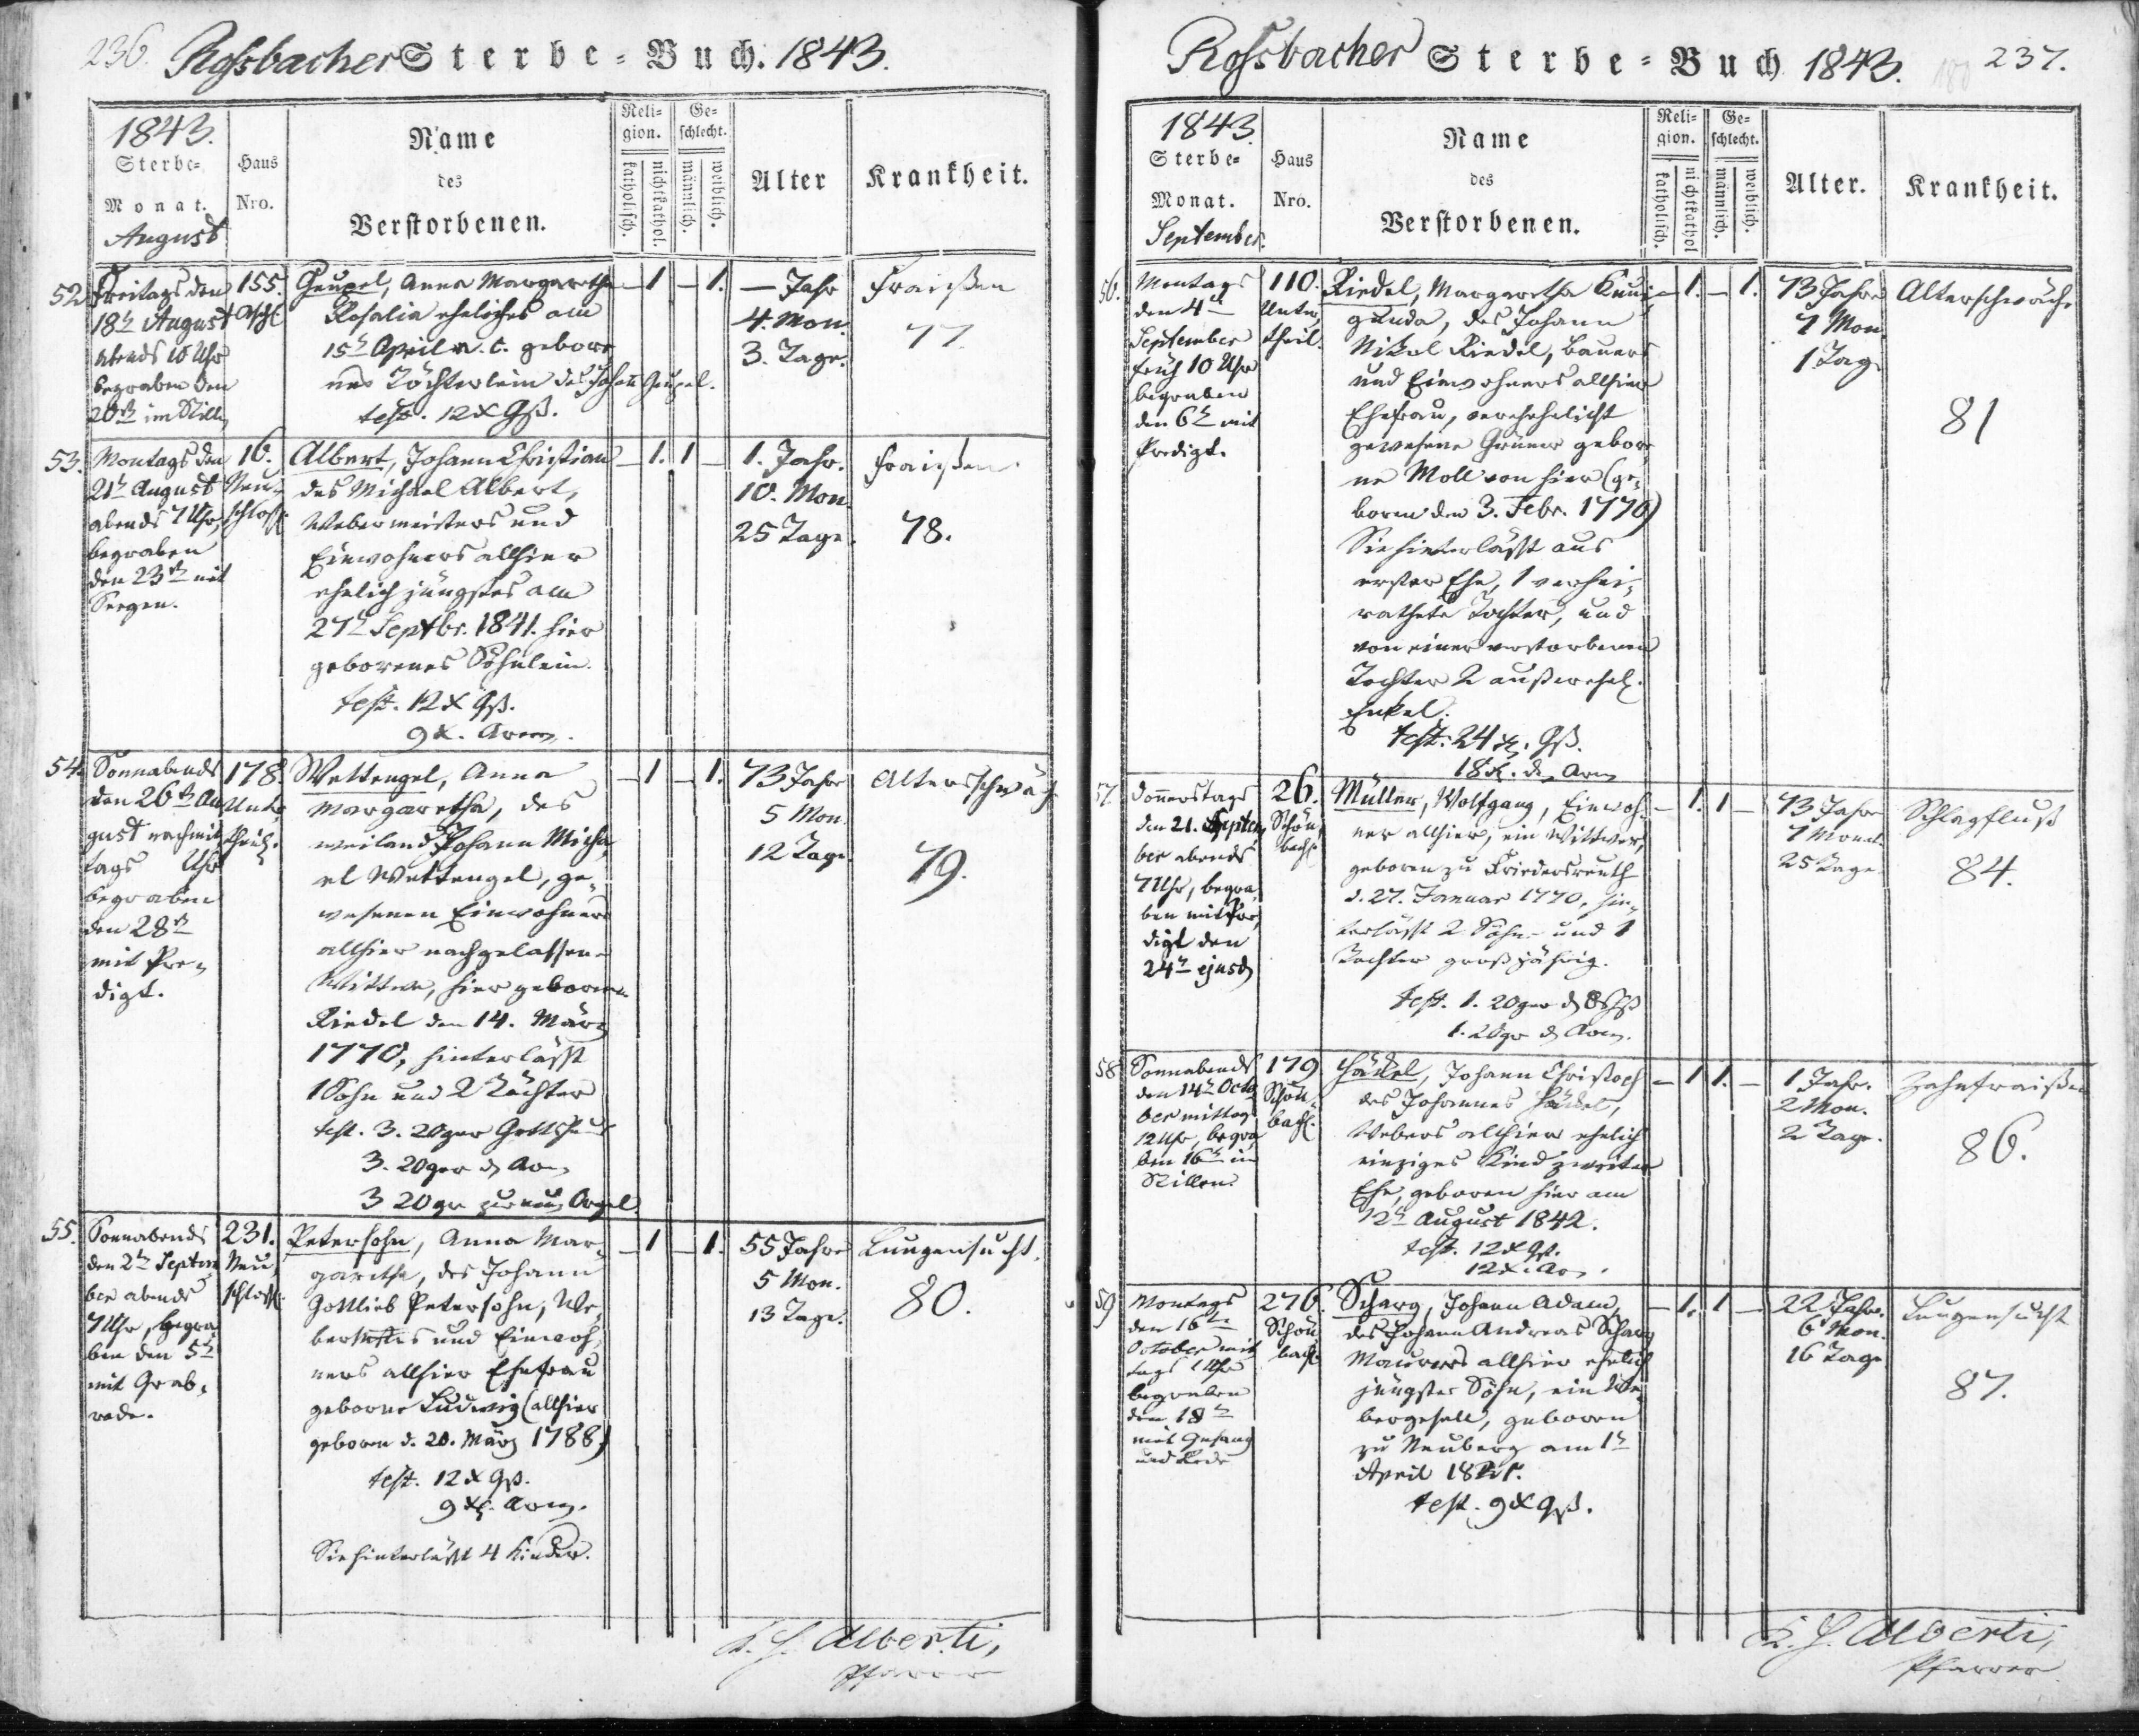 236. Roßbacher Sterbe-Buch. 1843.
1843.
Sterbe-
Monat.
August
Haus
Nro.
Name
des
Verstorbenen.
Reli-
gion.
katholisch.
nichtkathol.
Ge-
schlecht.
männlich.
weiblich.
Alter
Krankheit.
52.
Freitags den
18n August
abends 10 Uhr
begraben den
20tn im Stillen
155.
Geupel, Anna Margaretha
Rosalia eheliches am
15n April a. c. gebore
nes Töchterlein des Johann Geupel.
test. 12 x Gß.
— 1 — 1.
— Jahr
4. Mon.
3. Tage.
Fraißen
77.
53.
Montags den
21n August
abends 7 Uhr,
begraben
den 23tn mit
Seegen.
16.
Neu-
schloß
Albert, Johann Christian
des Michael Albert,
Webermeisters und
Einwohners allhier
ehelich jüngstes am
27n Septbr. 1841. hier
geborenes Söhnlein.
test. 12 x Gß.
9 x. Arm.
— 1. 1 —
1. Jahr.
10. Mon.
25 Tage.
Fraißen.
78.
54.
Sonnabends
den 26tn Au
gust nachmit
tags Uhr
begraben
den 28tn
mit Pre-
digt.
178.
Unter
theil.
Wettengel, Anna
Margaretha, des
weiland Johann Micha
el Wettengel, ge-
wesenen Einwohners
allhier nachgelassene
Wittwe, hier geborene
Riedel den 14. März
1770, hinterläßt
1 Sohn und 2 Töchter
test. 3. 20ger Gotteshaus
3. 20ger d. Arm.
3 20gr zur neuen Orgel.
— 1 — 1.
73 Jahre
5 Mon.
12 Tage.
Altersschwäch
79.
55.
Sonnabends
den 2tn Septem
ber abends
7 Uhr, begra
ben den 5n
mit Grab-
rede.
231.
Neu-
schloß.
Petersohn, Anna Mar-
garetha, des Johann
Gottlieb Petersohn, We-
bermstrs und Einwoh-
ners allhier Ehefrau
geborne Ludwig (allhier
geboren d. 20. März 1788)
test. 12 x Gß.
9 x. Arm.
Sie hinterläßt 4 Kinder.
— 1 — 1.
55 Jahre
5 Mon.
13 Tage.
Lungensucht.
80.
Alberti,
Pfarrer
Roßbacher Sterbe-Buch 1843. 237.
1843
Sterbe-
Monat.
September.
Haus
Nro.
Name
des
Verstorbenen.
Reli-
gion.
katholisch.
nichtkathol
Ge-
schlecht.
männlich.
weiblich.
Alter.
Krankheit.
56.
Montags
den 4tn
September
früh 10 Uhr
begraben
den 6n mit
Predigt.
110.
Unter
theil.
Riedel, Margaretha Kuni-
gunda, des Johann
Nikol Riedel, Bauers
und Einwohners allhier
Ehefrau, verehelicht
gewesene Grüner gebor
ne Moll von hier (ge-
boren den 3. Febr. 1770)
Sie hinterläßt aus
erster Ehe, 1 verhei-
rathete Tochter, und
von einer verstorbenen
Tochter 2 außerehel.
Enkel.
test. 24 x. Gß.
18 x. d. Arm
— 1. — 1.
73 Jahre
7 Mon.
1 Tag
Alterschwäche
81
57
Donnerstags
den 21. Septem
ber abends
7 Uhr, begra
ben mit Pre
digt den
24n ejusd
26.
Schön
bach
Müller, Wolfgang, Einwoh-
ner allhier, ein Wittwer,
geboren zu Friedersreuth
d. 27. Januar 1770, hin-
terläßt 2 Söhne und 1
Tochter großjährig.
test. 1. 20ger d. Gß
1. 20gr d. Arm.
— 1. 1 —
73 Jahre
7 Monat
25 Tage.
Schlagfluß
84.
58
Sonnabends
den 14n Octo
ber mittag
12 Uhr, begra
ben 16n im
Stillen.
179
Schön-
bach.
Häckel, Johann Christoph
des Johannes Häckel,
Webers allhier ehelich
einziges Kind zweiter
Ehe, geboren hier am
12n August 1842.
test. 12 x Gß.
12 x. Arm.
— 1 1. —
1 Jahr.
2 Mon.
2 Tage.
Zahnfraißen
86.
59
Montags
den 16tn
October mit
tags 1 Uhr
begraben
den 18tn
mit Gesang
und Rede
276.
Schön
bach
Scharg, Johann Adam,
des Johann Andreas Scharg
Maurers allhier ehelich
jüngster Sohn, ein We-
bergesell, geboren
zu Neuberg am 1n
April 1821.
test. 9 x Gß.
— 1. 1 —
22 Jahre.
6 Mon.
16 Tage
Lungensucht
87.
Alberti,
Pfarrer